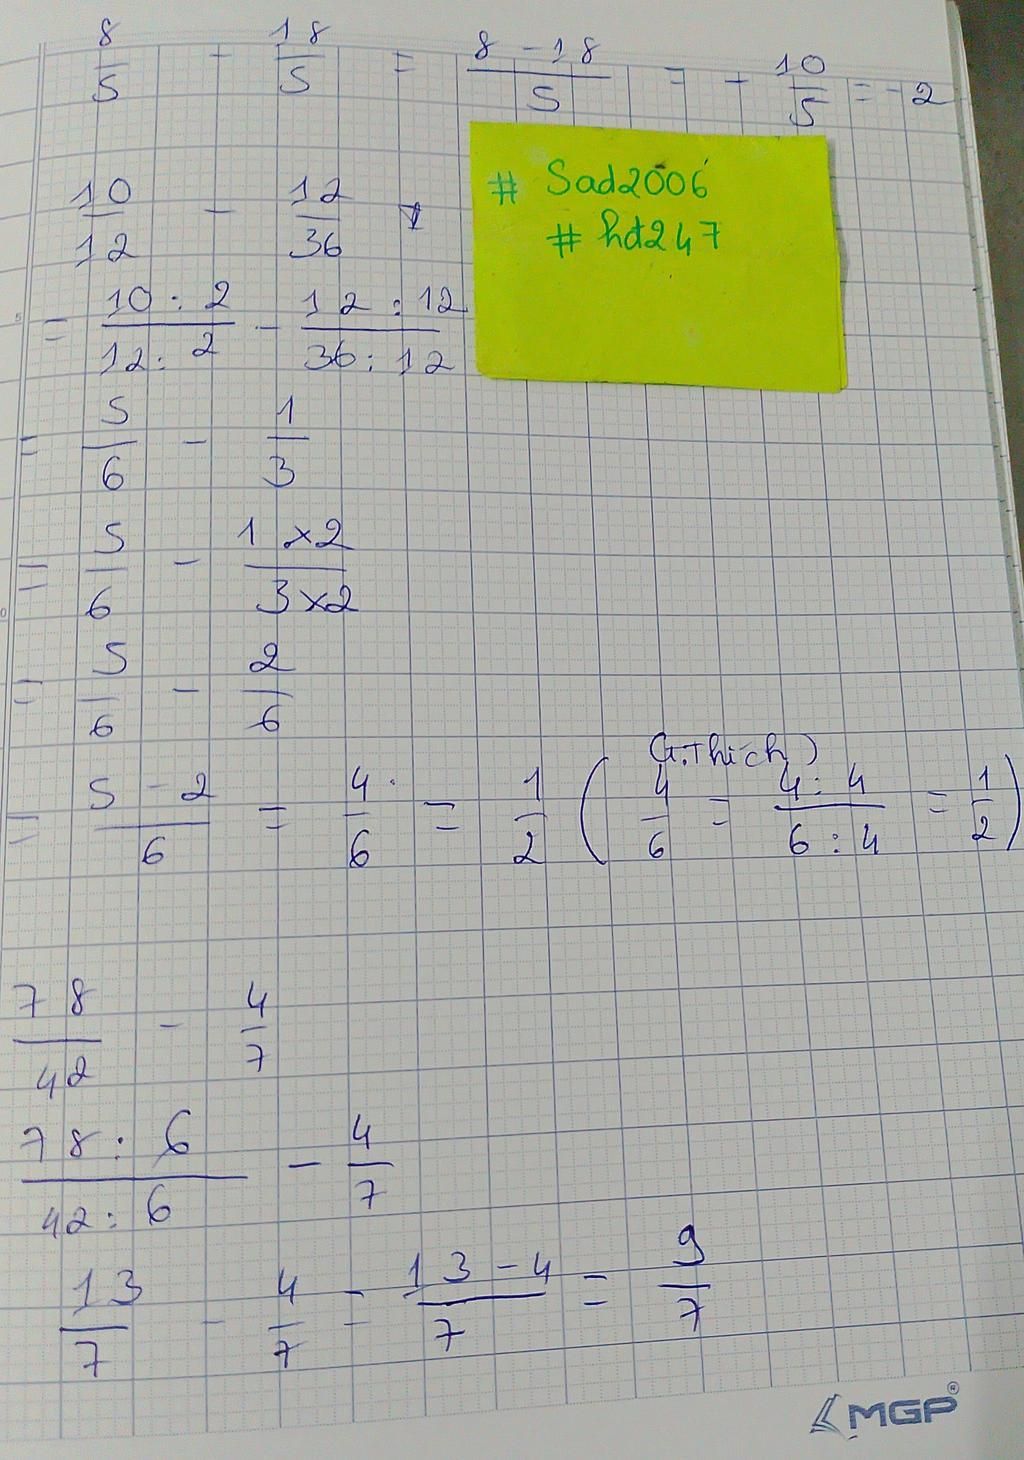 8/5 - 18/5 = 8-18/5 = - 10/5 = -2
# Sad2006
# hđ247
10/12 - 12/36
= 10:2/12:2 - 12:12/36:12
= 5/6 - 1/3
= 5/6 - 1×2/3×2
= 5/6 - 2/6
(G.Thích)
= 5-2/6 = 4/6 = 1/2 ( 4/6 = 4:4/6:4 = 1/2 )
78/42 - 4/7
78:6/42:6 - 4/7
13/7 - 4/7 = 13-4/7 = 9/7
MGP®